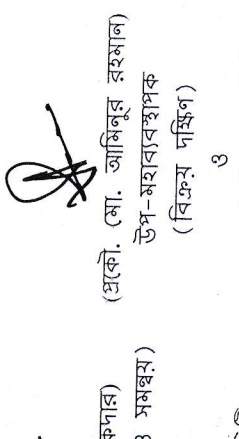 (প্রকৌ. মো. আমিনুর রহমান)
উপ-মহাব্যবস্থাপক
(বিক্রয় দক্ষিণ)
ও
কদার)
ও সমন্বয়)